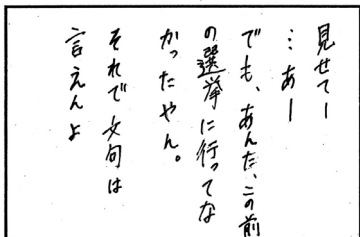 見せてー
…あー
でも、あんた、この前
の選挙に行ってな
かったやん。
それで文句は
言えんよ